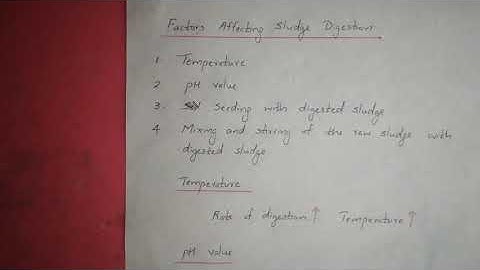 Factors Affecting Sludge Digestion
1 Temperature
2 pH value
3. Seeding with digested sludge
4 Mixing and stiring of the raw sludge with
digested sludge
Temperature
Rate of digestion ↑ Temperature ↑
pH value